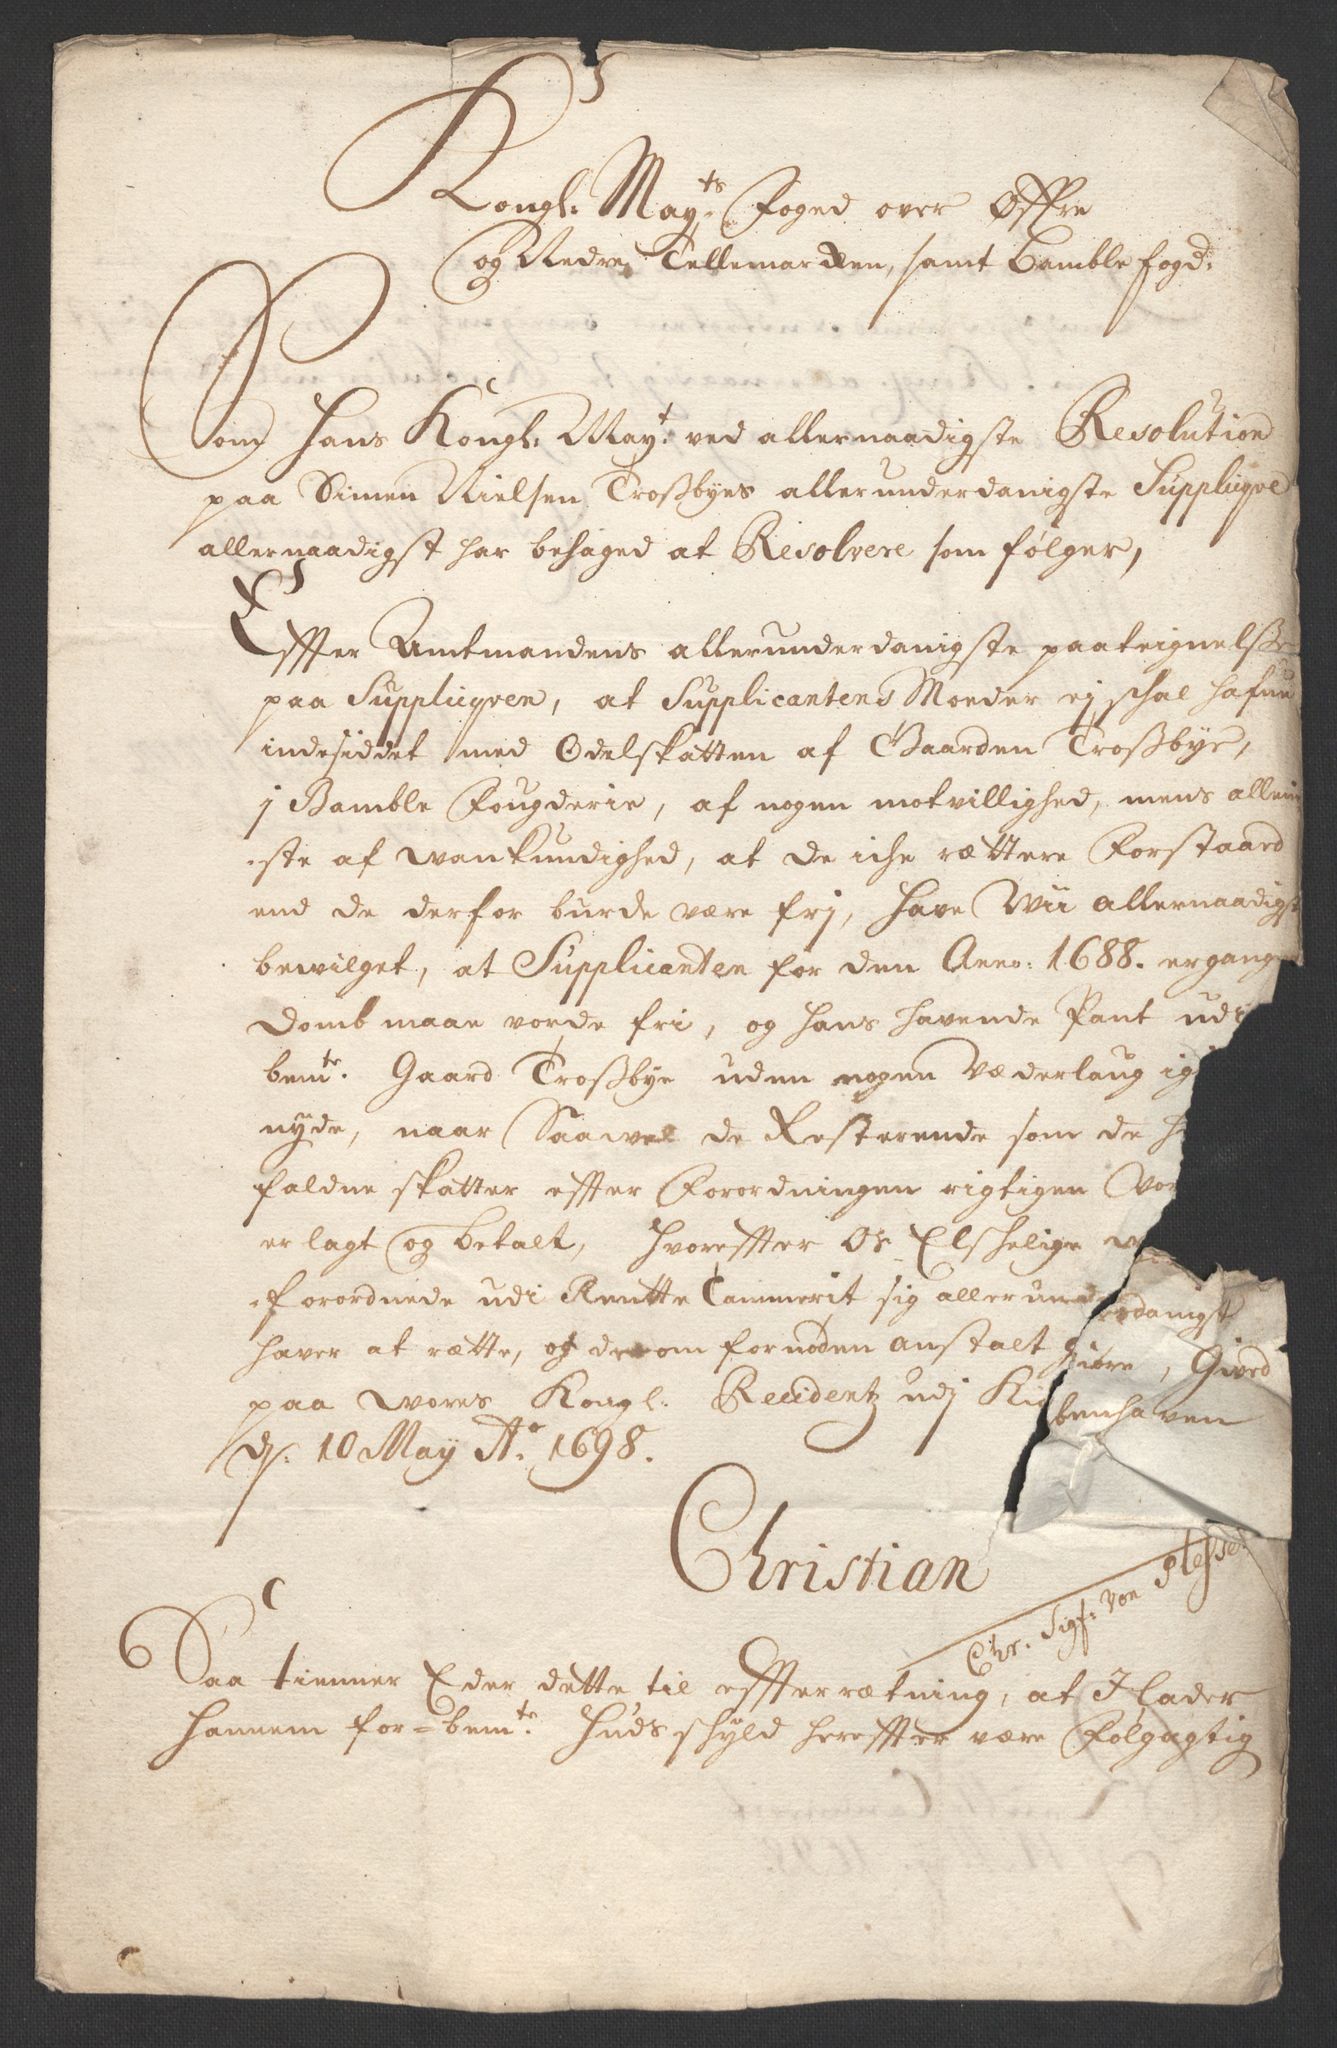 Kongl: May:ts Foged over Øffre
og Nedre Tellemarcken, samt Bamble fogd:
Som Hans Kongl: May:t ved allernaadigste Resolution
paa Simen Nielsen Troßbyes allerunderdanigste Suppliqve
allernaadigst har behaged at Resolvere som følger,
Effter Amtmandens allerunderdanigste paateignelße
paa Suppliqven, at Supplicantens Moeder ej schal hafue
indesiddet med Odelskatten af Gaarden Troßbye,
j Bamble Fougderie, af nogen motvillighed, mens allene
-ste af wankundighed, at de iche rættere Forstaard
end de derfor burde være frj, Have Wii allernaadigst
bewilget, at Supplicanten for den Anno: 1688. ergangne
Domb maae vorde fri, og hans havende Pant udi
bem:te Gaard Troßbye uden nogen Væderlaug ig
nyde, naar Saawel de Resterende som de H
faldne skatter effter Forordningen rigtigen Vor
erlagt og betalt, Hvoreffter Os Elschelige
forordnede udi Rentte Cammerit sig allerunderdanigst
haver at rætte, og derom fornøden anstalt giøre, Gived
paa wores Kongl. Recidentz udj Kiøbenhaven
d: 10 May Ao 1698.
Christian
Chr. Sigf: von Plessen
Saa tienner Eder dette til effterrætning, at I lader
hannem for-bem:te Huds schyld hereffter være Følgagtig